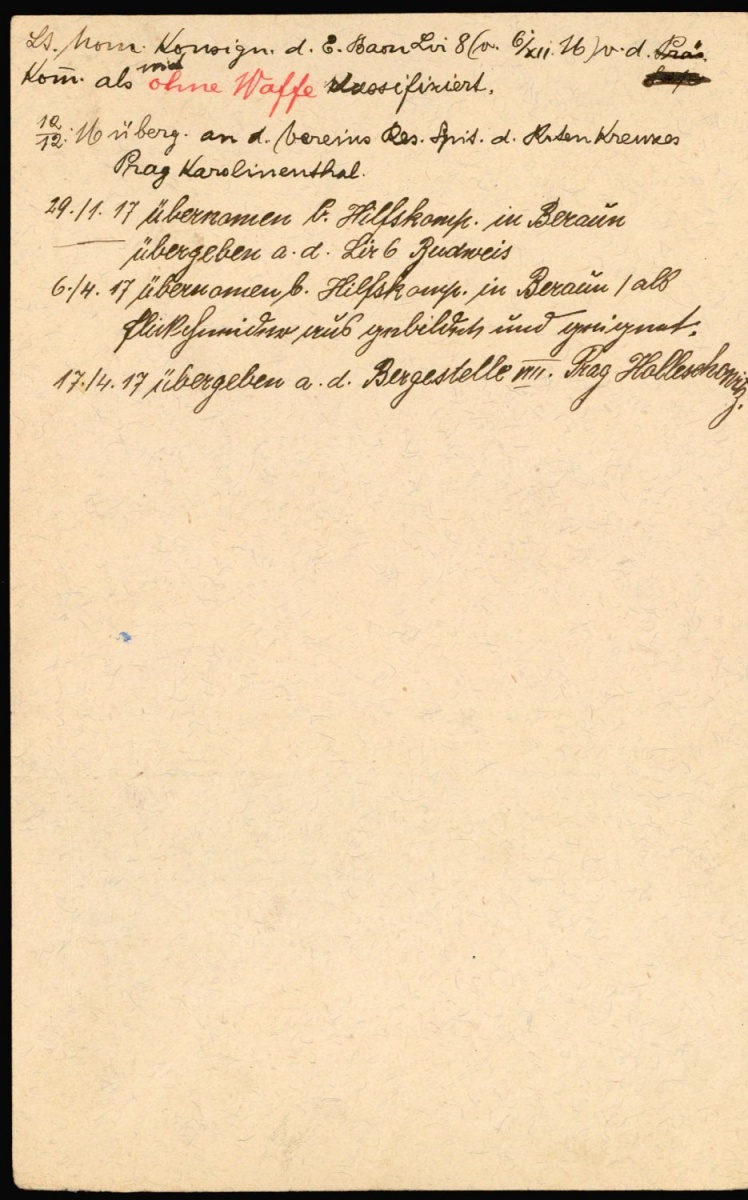 Lt. Nom. Konsign. d. E. Baon Lvi 8 (v. 6/XII. 16) v. d. Präs.
Kom̄. als mid ohne Waffe klassifiziert.
10/12. 16 überg. an d. Vereins Res. Spit. d. Roten Kreuzes
Prag Karolinenthal.
29./1. 17 übernomen b. Hilfskomp. in Beraun
übergeben a. d. Lir 6 Budweis
6./4. 17 übernomen b. Hilfskomp. in Beraun / als
Flickschneider aus gebildet und geeignet.
17./4. 17 übergeben a. d. Bergestelle VIII. Prag Holleschowitz.